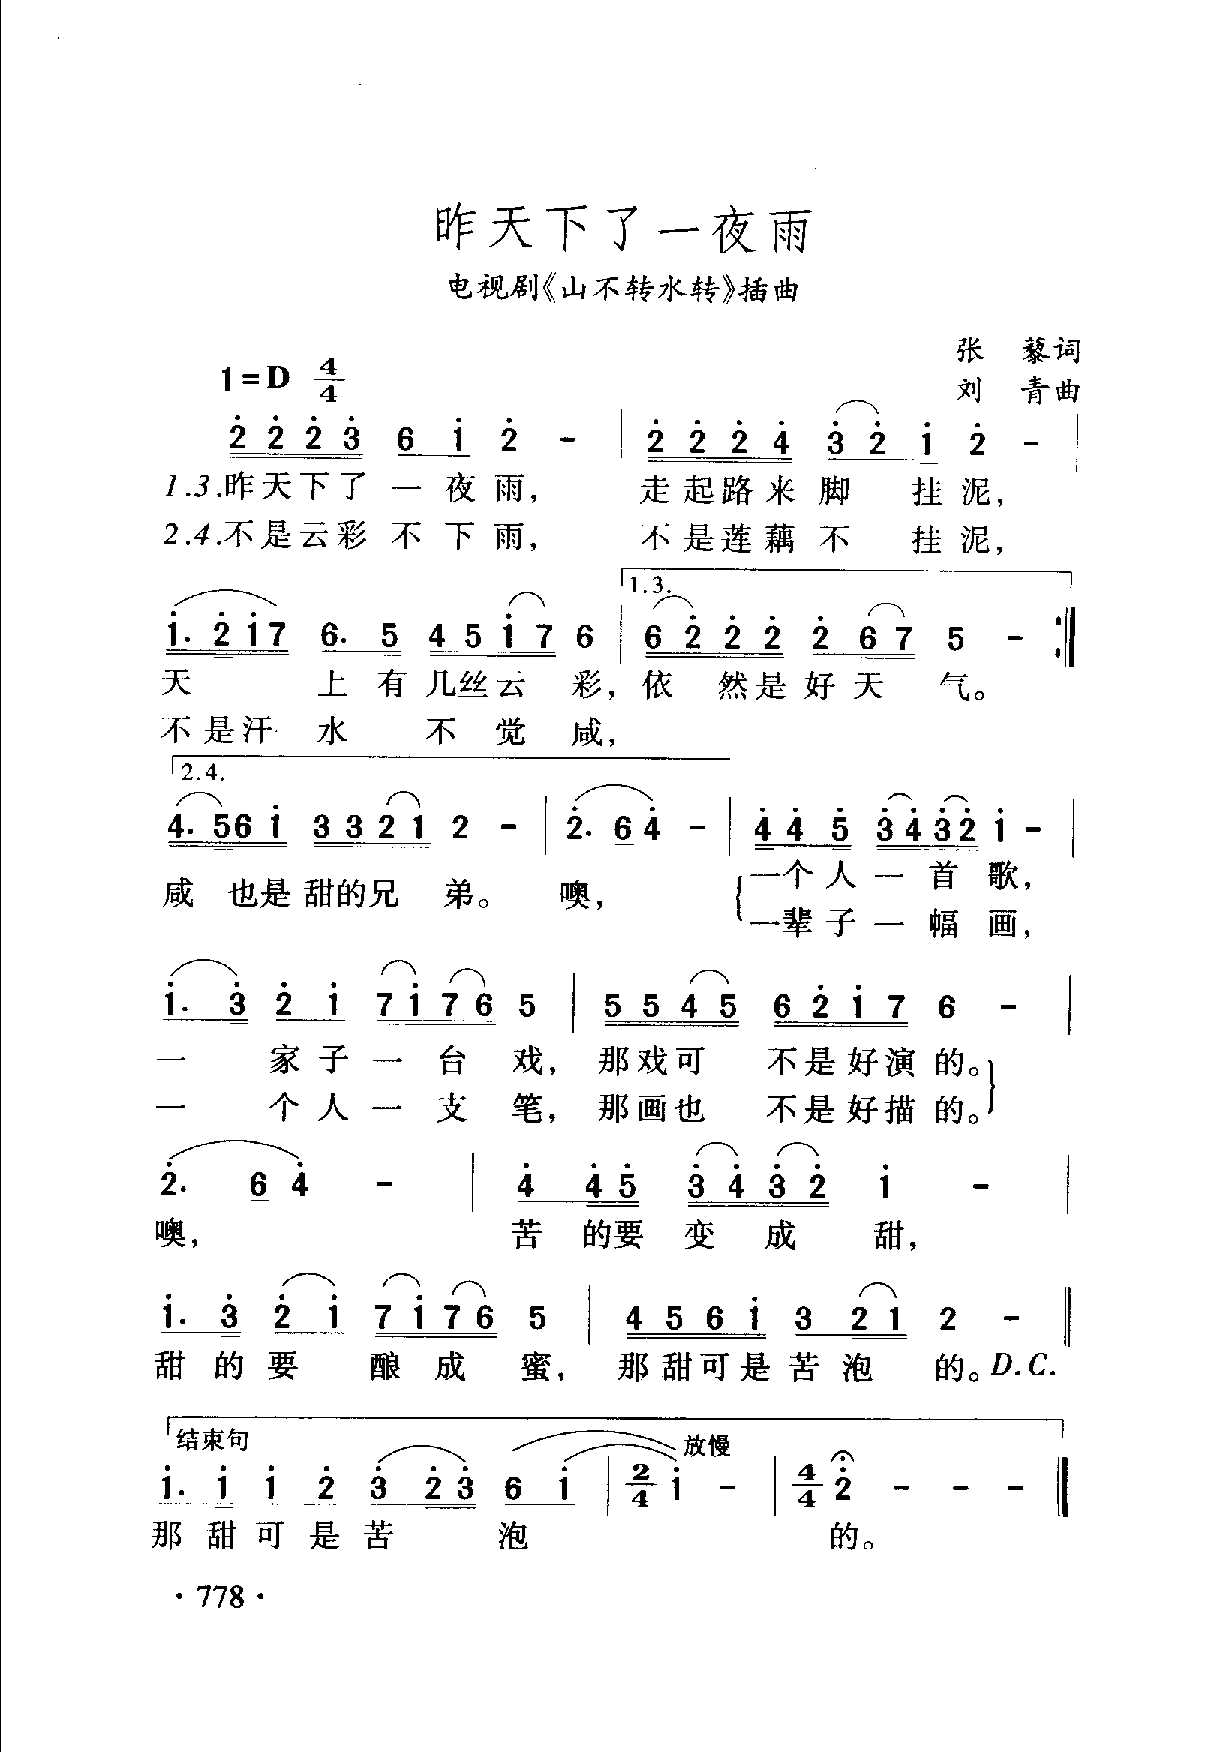 昨天下了一夜雨
电视剧《山不转水转》插曲
张 藜词
1=D 4/4
刘 青曲
2 2 2 3 6 1 2 - | 2 2 2 4 3 2 1 2 - |
1.3.昨天下了一夜雨, 走起路来脚 挂泥,
2.4.不是云彩不下雨, 不是莲藕不 挂泥,
1.3.
1. 2 1 7 6. 5 4 5 1 7 6 | 6 2 2 2 2 6 7 5 - :||
天 上有几丝云 彩,依 然是好天 气。
不是汗水 不觉 咸,
2.4.
4. 5 6 1 3 3 2 1 2 - | 2. 6 4 - | 4 4 5 3 4 3 2 1 - |
咸 也是甜的兄 弟。 噢, 一个人一首歌,
一辈子一幅画,
1. 3 2 1 7 1 7 6 5 | 5 5 4 5 6 2 1 7 6 - |
一 家子一台戏, 那戏可 不是好演的。
一 个人一支笔, 那画也 不是好描的。
2. 6 4 - | 4 4 5 3 4 3 2 1 - |
噢, 苦 的要变成甜,
1. 3 2 1 7 1 7 6 5 | 4 5 6 1 3 2 1 2 - ||
甜的要 酿成蜜, 那甜可是苦泡 的。D.C.
结束句 放慢
1. 1 1 2 3 2 3 6 1 | 2/4 1 - | 4/4 2 - - - ||
那甜可是苦 泡 的。
· 778 ·